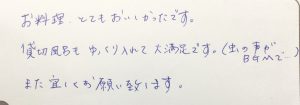 お料理、とてもおいしかったです。
貸切風呂もゆっくり入れて大満足です。(虫の声がBGMで…)
また宜しくお願い致します。